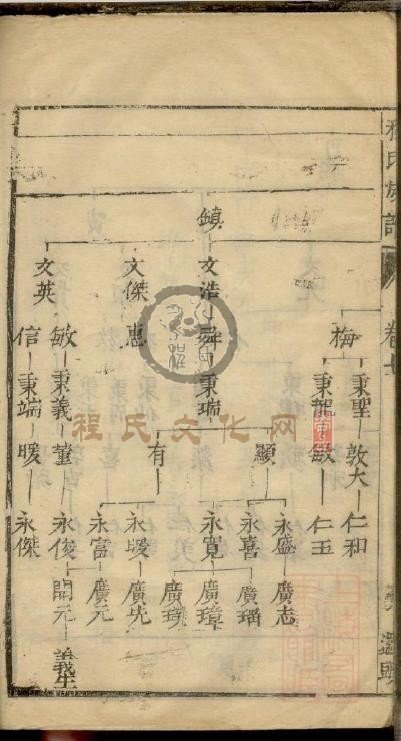 程氏族譜
卷七
鎮
梅
秉聖
敦大
仁和
秉龍
敏
仁玉
文浩
舜
秉瑞
顯
永盛
廣志
永喜
廣瑀
永寬
廣璋
廣瑛
有
永暖
廣先
永富
廣元
文傑
惠
文英
敏
秉義
董
永俊
開元
義生
信
秉端
暖
永傑
程氏文化网